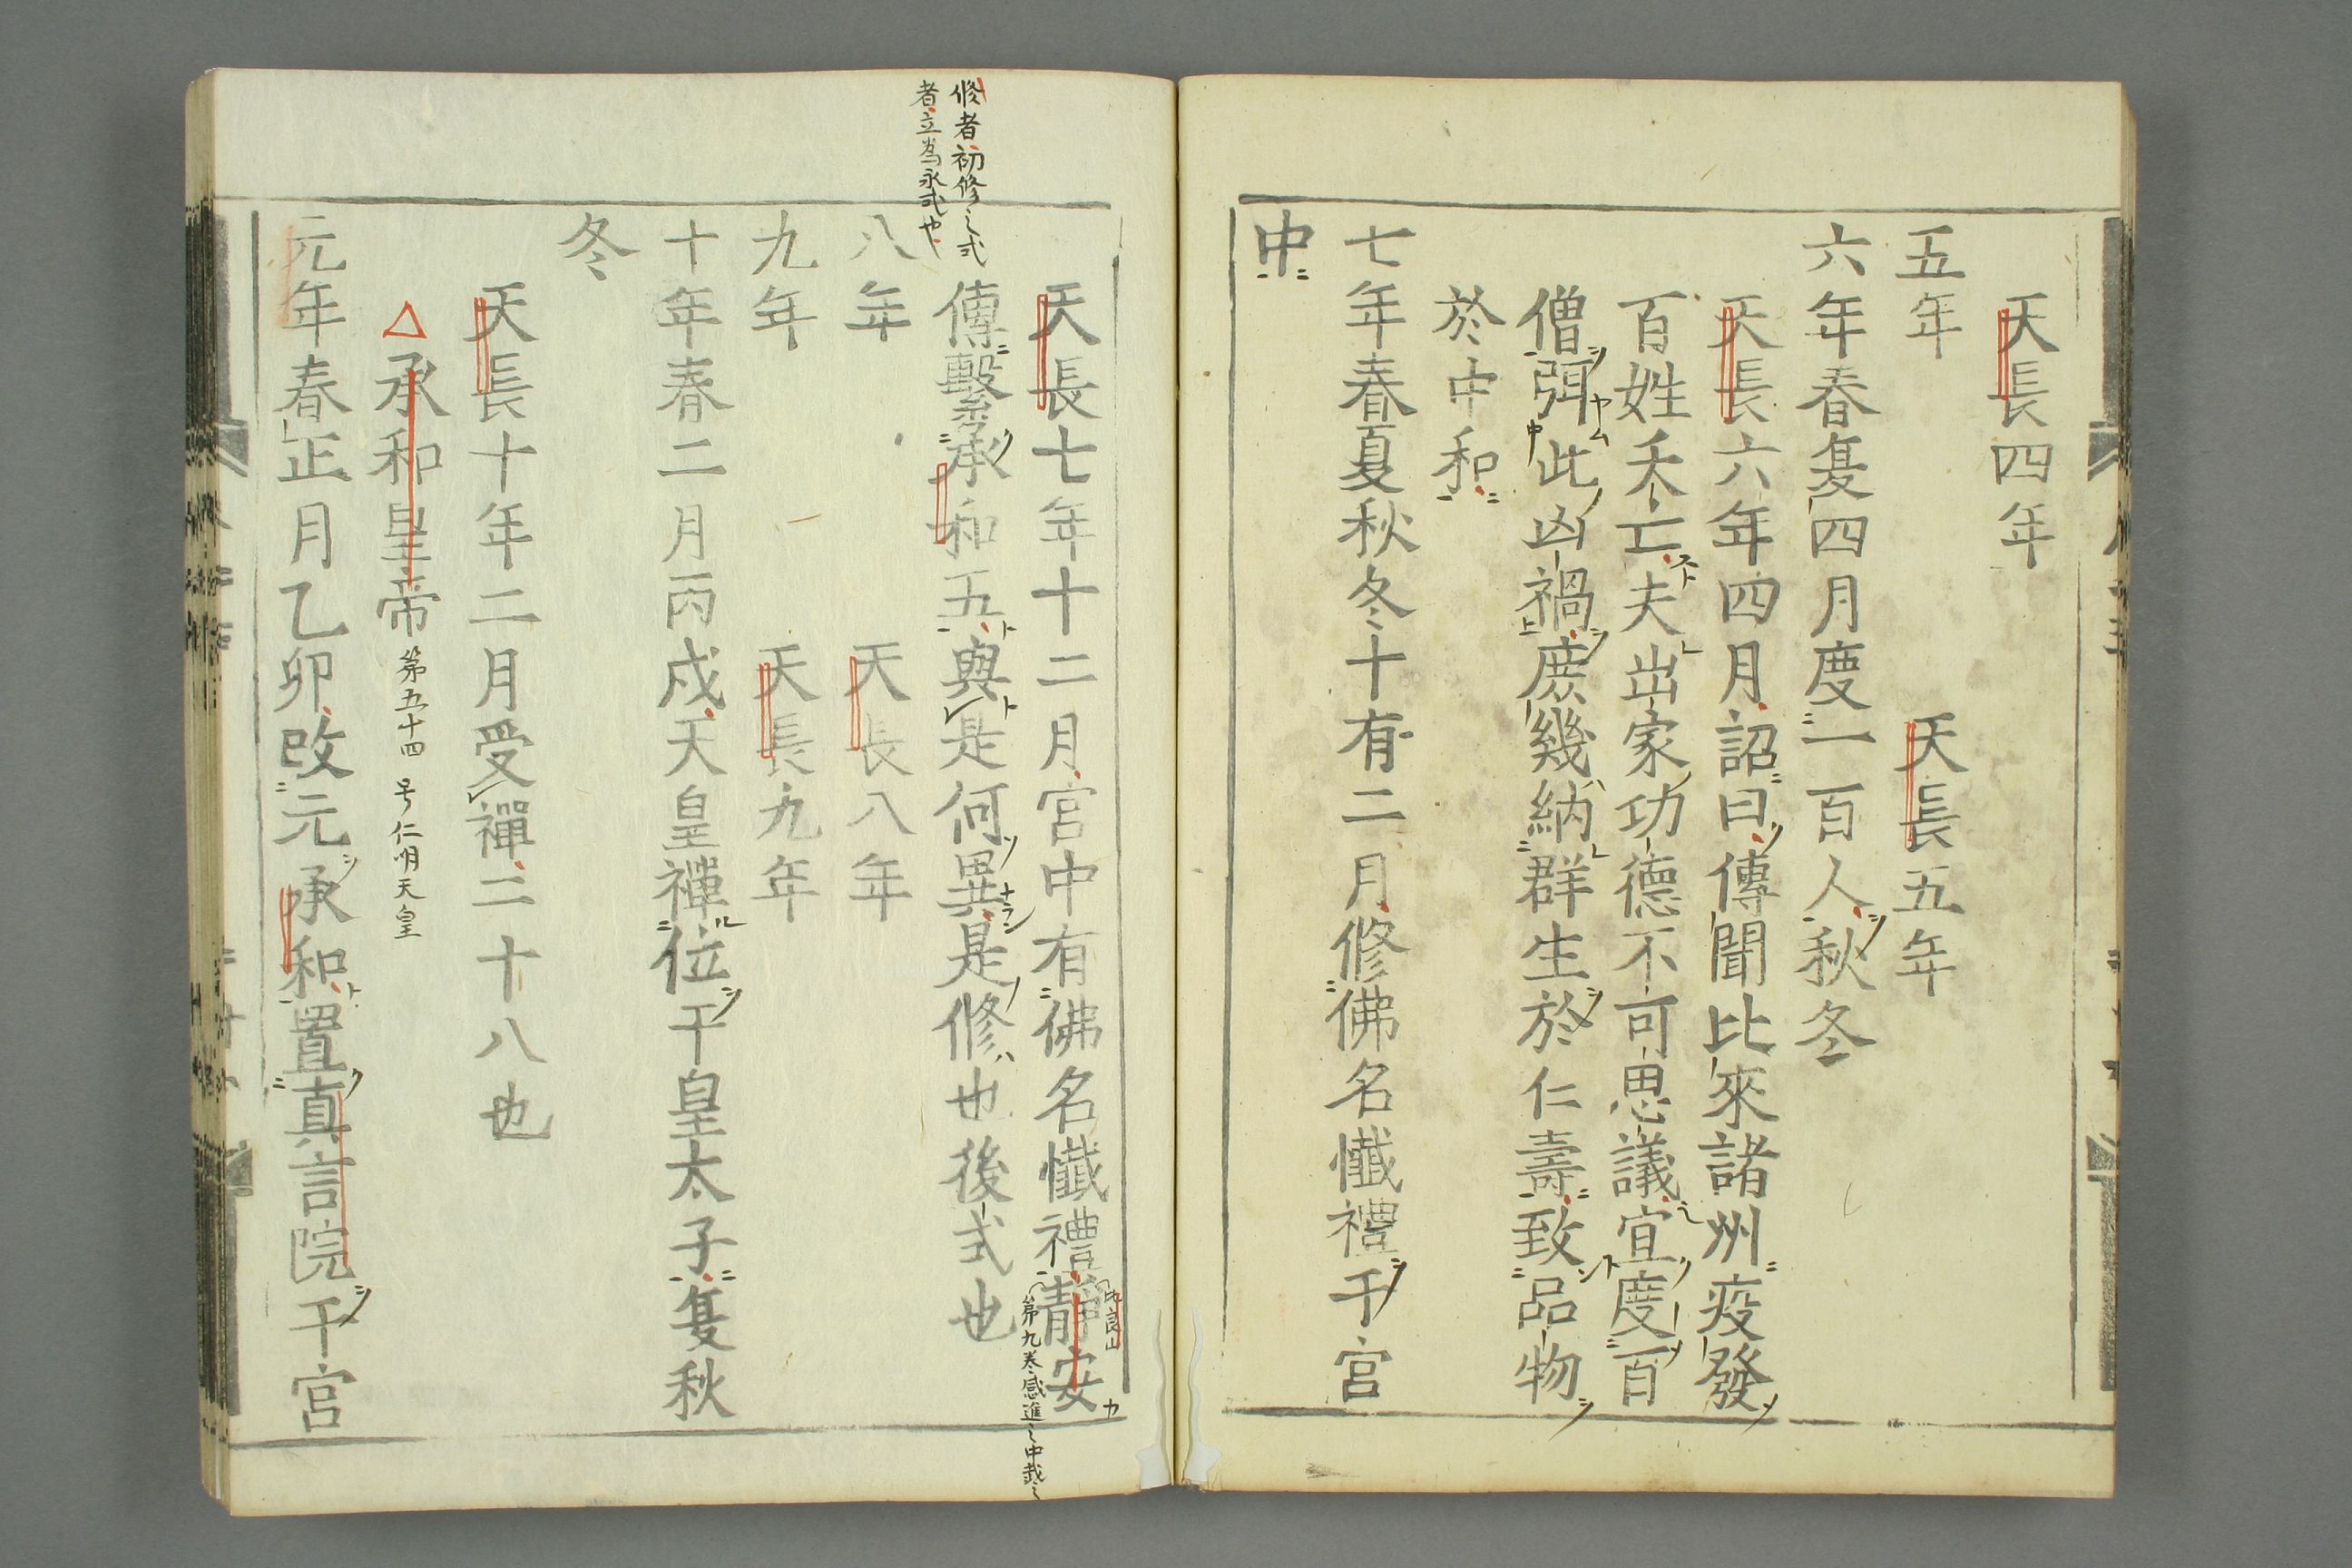 天長四年
五年　天長五年
六年春夏四月度一百人秋冬
天長六年四月詔曰傳聞比來諸州疫發
百姓夭亡夫出家功德不可思議宜度百
僧弭此凶禍庶幾納群生於仁壽致品物
於中和
七年春夏秋冬十有二月修佛名懺禮于宮
中
修者初修之式
者立為永式也
天長七年十二月宮中有佛名懺禮靜安
比良山
第九卷感進之中載之
傳繫承和五與是何異是修也後式也
八年　天長八年
九年　天長九年
十年春二月丙戌天皇禪位于皇太子夏秋
冬
天長十年二月受禪二十八也
△承和皇帝 第五十四 号仁明天皇
元年春正月乙卯改元承和置真言院于宮